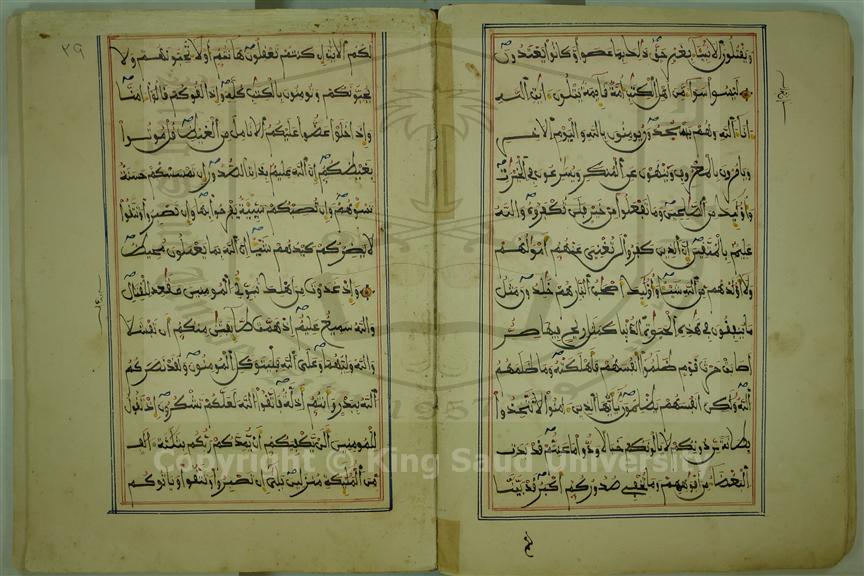 ويقتلون الانبيا بغير حق ذلك بما عصوا وكانوا يعتدون
ليسوا سوا من اهل الكتب امة قايمة يتلون ايت الله
انا اليل وهم يسجدون يومنون بالله واليوم الاخر
ويامرون بالمعروف وينهون عن المنكر ويسرعون في الخيرت
واوليك من الصلحين وما تفعلوا من خير فلن تكفروه والله
عليم بالمتقين ان الذين كفروا لن تغني عنهم امولهم
ولا اولدهم من الله شيا واوليك اصحب النار هم فيها خلدون مثل
ما ينفقون في هذه الحيوة الدنيا كمثل ريح فيها صر
اصابت حرث قوم ظلموا انفسهم فاهلكته وما ظلمهم
الله ولكن انفسهم يظلمون يايها الذين امنوا لا تتخذوا
بطانة من دونكم لا يالونكم خبالا ودوا ما عنتم قد بدت
البغضا من افوههم وما تخفي صدورهم اكبر قد بينا
٣٩
لكم الايت ان كنتم تعقلون هانتم اولا تحبونهم ولا
يحبونكم وتومنون بالكتب كله واذا لقوكم قالوا امنا
واذا خلوا عضوا عليكم الانامل من الغيظ قل موتوا
بغيظكم ان الله عليم بذات الصدور ان تمسسكم حسنة
تسوهم وان تصبكم سيية يفرحوا بها وان تصبروا وتتقوا
لا يضركم كيدهم شيا ان الله بما يعملون محيط
واذ غدوت من اهلك تبوي المومنين مقعد للقتال
والله سميع عليم اذ همت طايفتن منكم ان تفشلا
والله وليهما وعلى الله فليتوكل المومنون ولقد نصركم
الله ببدر وانتم اذلة فاتقوا الله لعلكم تشكرون اذ تقول
للمومنين الن يكفيكم ان يمدكم ربكم بثلثة الف
من المليكة منزلين بلى ان تصبروا وتتقوا وياتوكم
1957
Copyright © King Saud University